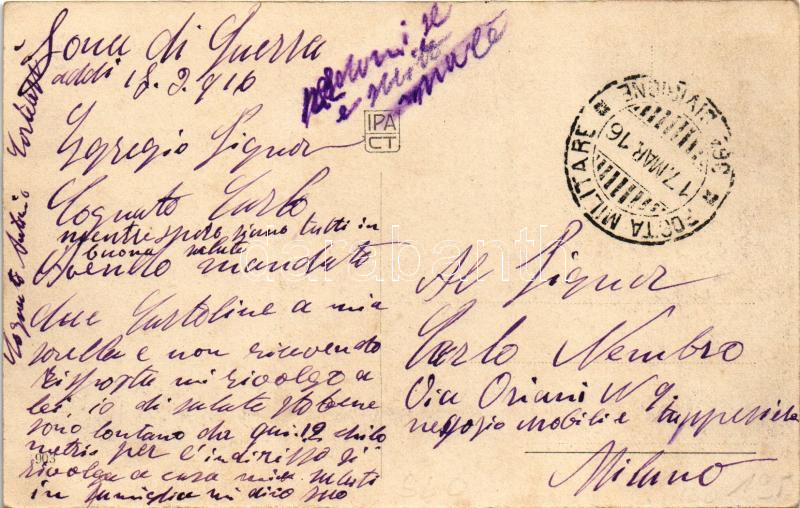 Zona di Guerra
addi 18.3.916
Egregio Signor
Cognato Carlo
mentre spero siano tutti in
buona salute
Avendo mandato
due Cartoline a mia
sorella e non ricevendo
risposta mi rivolgo a
lei, io di salute sto bene
sono lontano da qui 12 chilo
metri per l'indirizzo si
rivolga a casa mia saluti
in famiglia mi dico suo
Cognato
e
IPA
CT
POSTA MILITARE
DIVISIONE
17.MAR.16
Al Signor
Carlo Nembro
Via Oriani N 9
negozio mobili e tappezzieria
Milano
903
darabanth